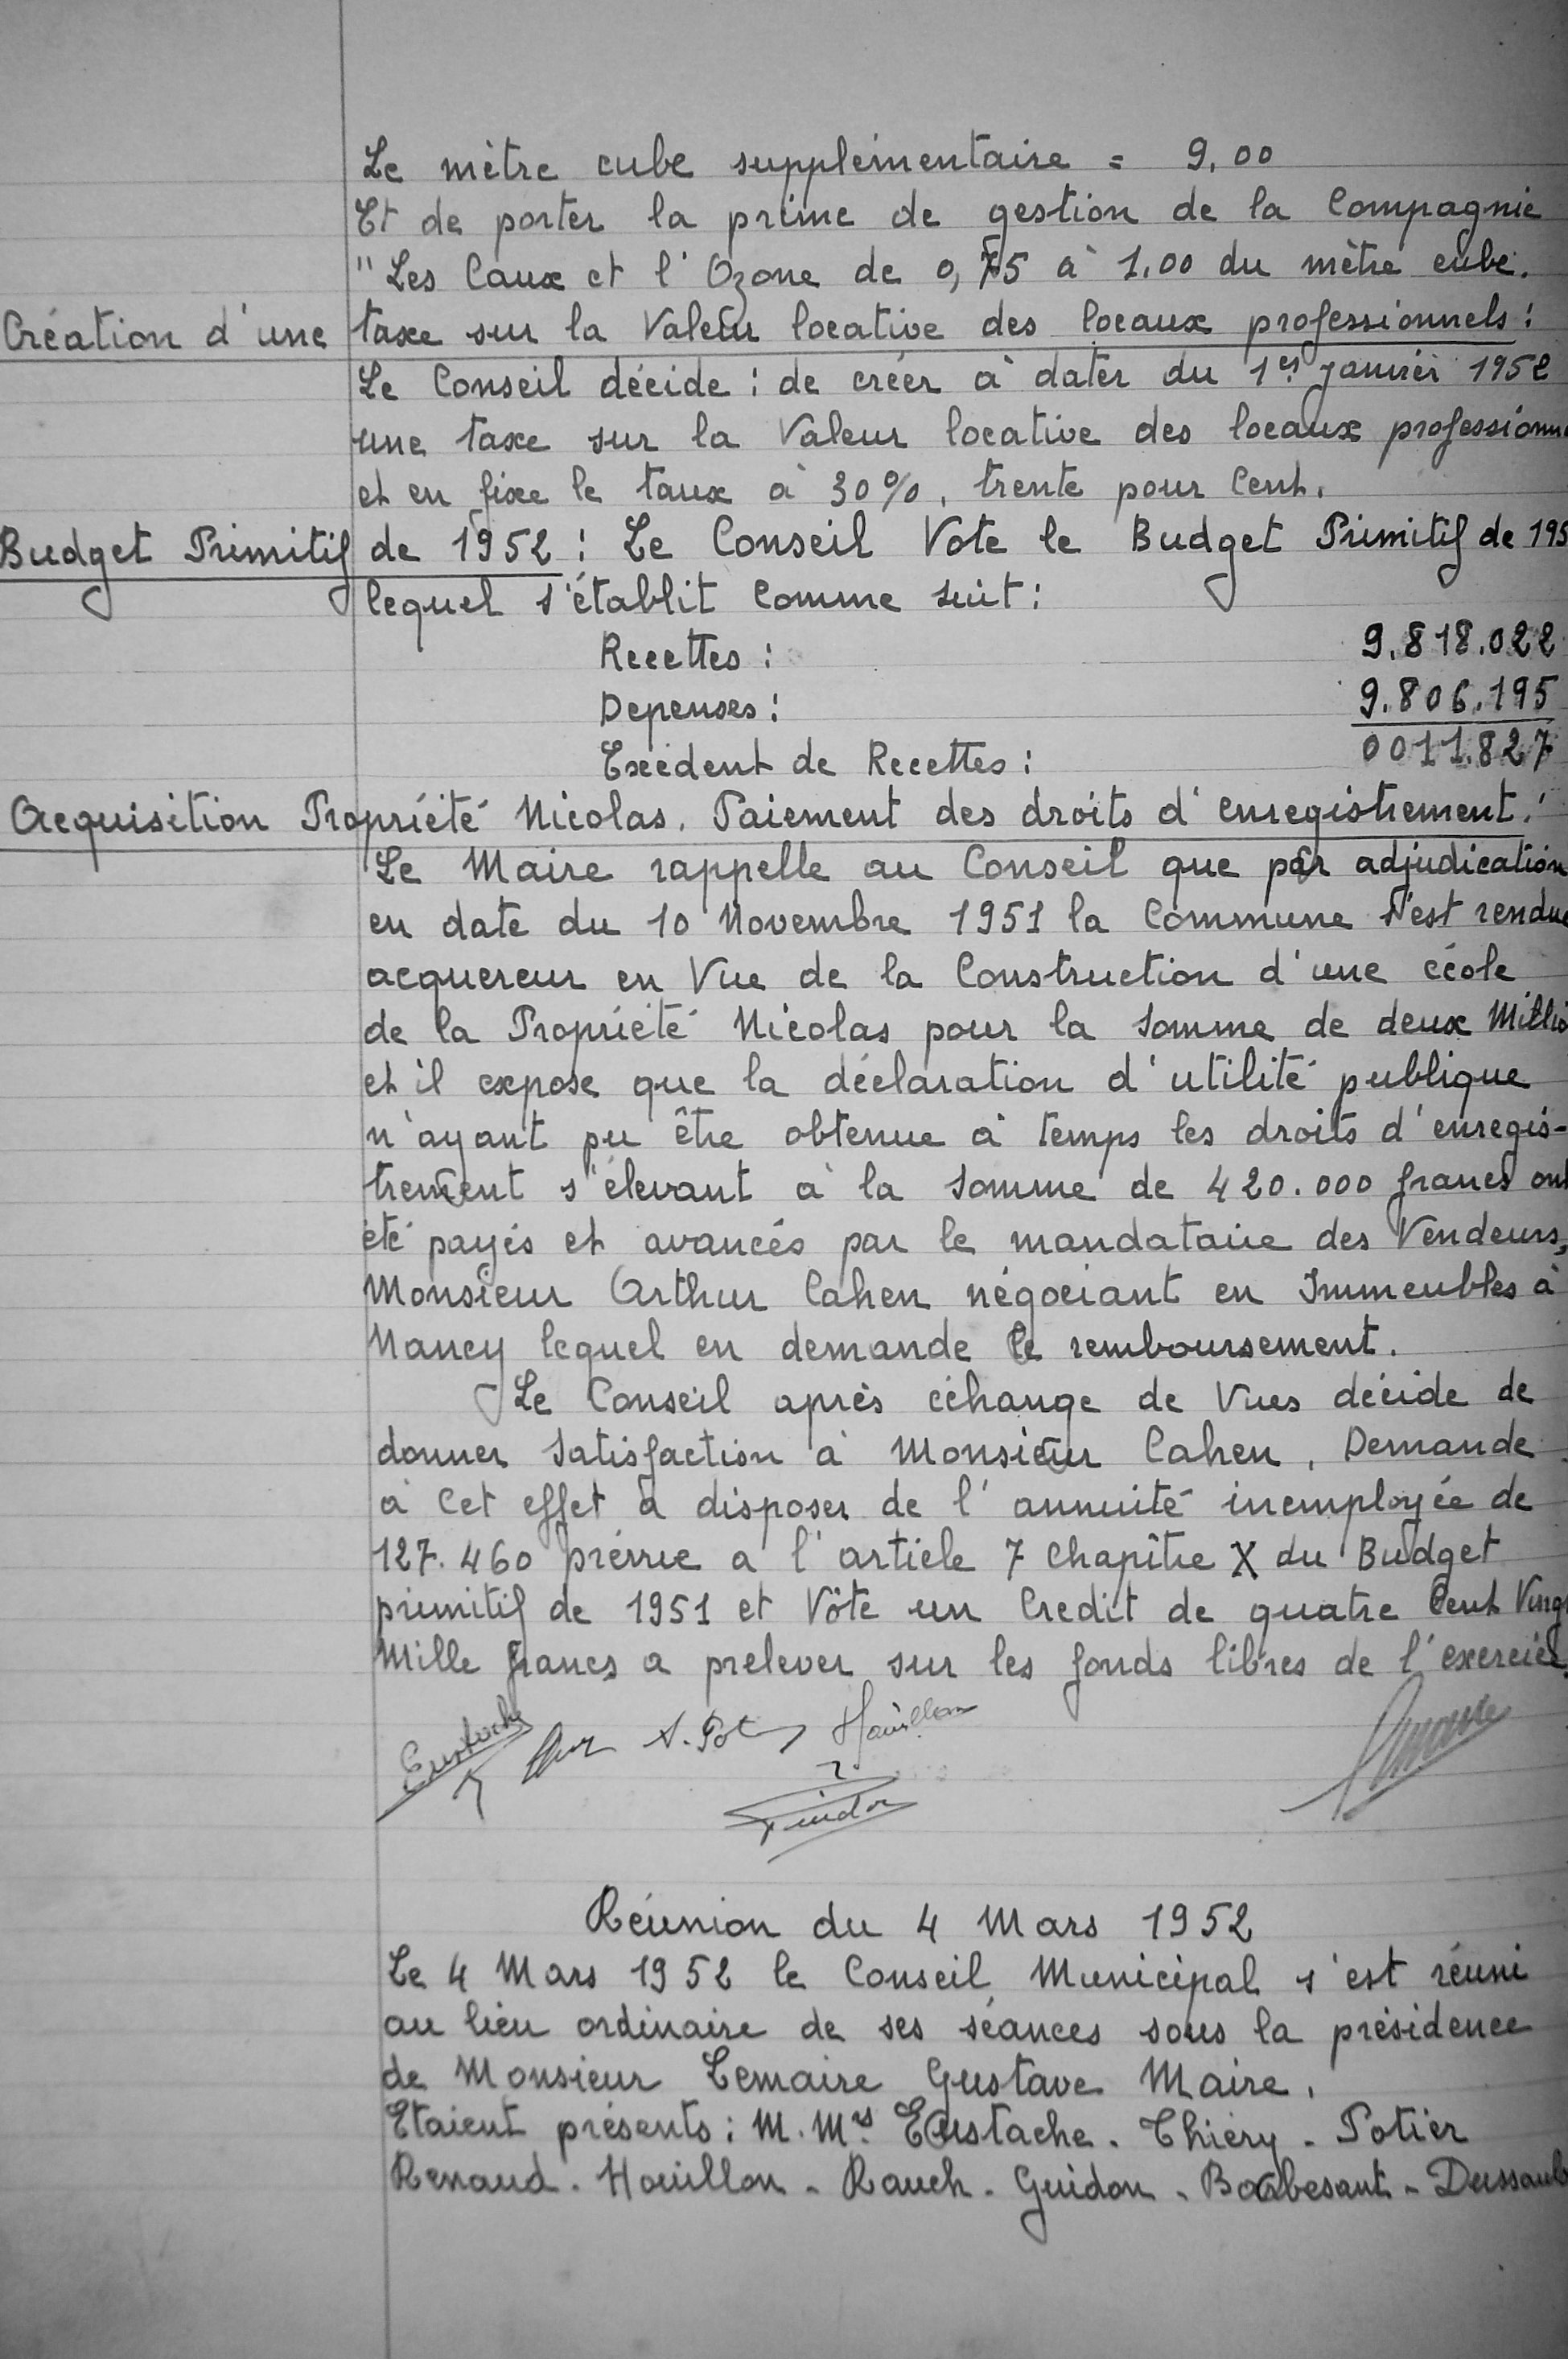 Le mètre cube supplémentaire = 9,00
Et de porter la prime de gestion de la Compagnie
" Les Eaux et l'Ozone de 0,75 à 1.00 du mètre cube.
Création d'une taxe sur la Valeur locative des locaux professionnels :
Le Conseil décide : de créer à dater du 1er janvier 1952
une taxe sur la Valeur locative des locaux professionne
et en fixe le taux à 30%, trente pour Cent.
Budget Primitif de 1952 : Le Conseil Vote le Budget Primitif de 195
lequel s'établit comme suit :
Recettes : 9.818.022
Depenses : 9.806.195
Excédent de Recettes : 0011.827
Acquisition Propriété Nicolas. Paiement des droits d'enregistrement :
Le Maire rappelle au Conseil que par adjudication
en date du 10 Novembre 1951 la Commune s'est rendue
acquereur en Vue de la Construction d'une école
de la Propriété Nicolas pour la somme de deux Millio
et il expose que la déclaration d'utilité publique
n'ayant pu être obtenue à temps les droits d'enregis-
trement s'élevant à la somme de 420.000 francs ont
été payés et avancés par le mandataire des Vendeurs,
Monsieur Arthur Cahen négociant en Immeubles à
Nancy lequel en demande le remboursement.
Le Conseil après échange de Vues décide de
donner satisfaction à Monsieur Cahen, Demande
à cet effet à disposer de l'annuité inemployée de
127.460 prévue a l'article 7 Chapître X du Budget
primitif de 1951 et Vote un Credit de quatre Cent Ving
Mille francs a prelever sur les fonds libres de l'exercice.
Eustache A. Pot Houillon
Guidon
Réunion du 4 Mars 1952
Le 4 Mars 1952 le Conseil Municipal s'est réuni
au lieu ordinaire de ses séances sous la présidence
de Monsieur Lemaire Gustave Maire.
Etaient présents : M.Mrs Eustache - Thiéry - Potier
Renaud - Houillon - Rauch - Guidon - Barbesant - Dussault